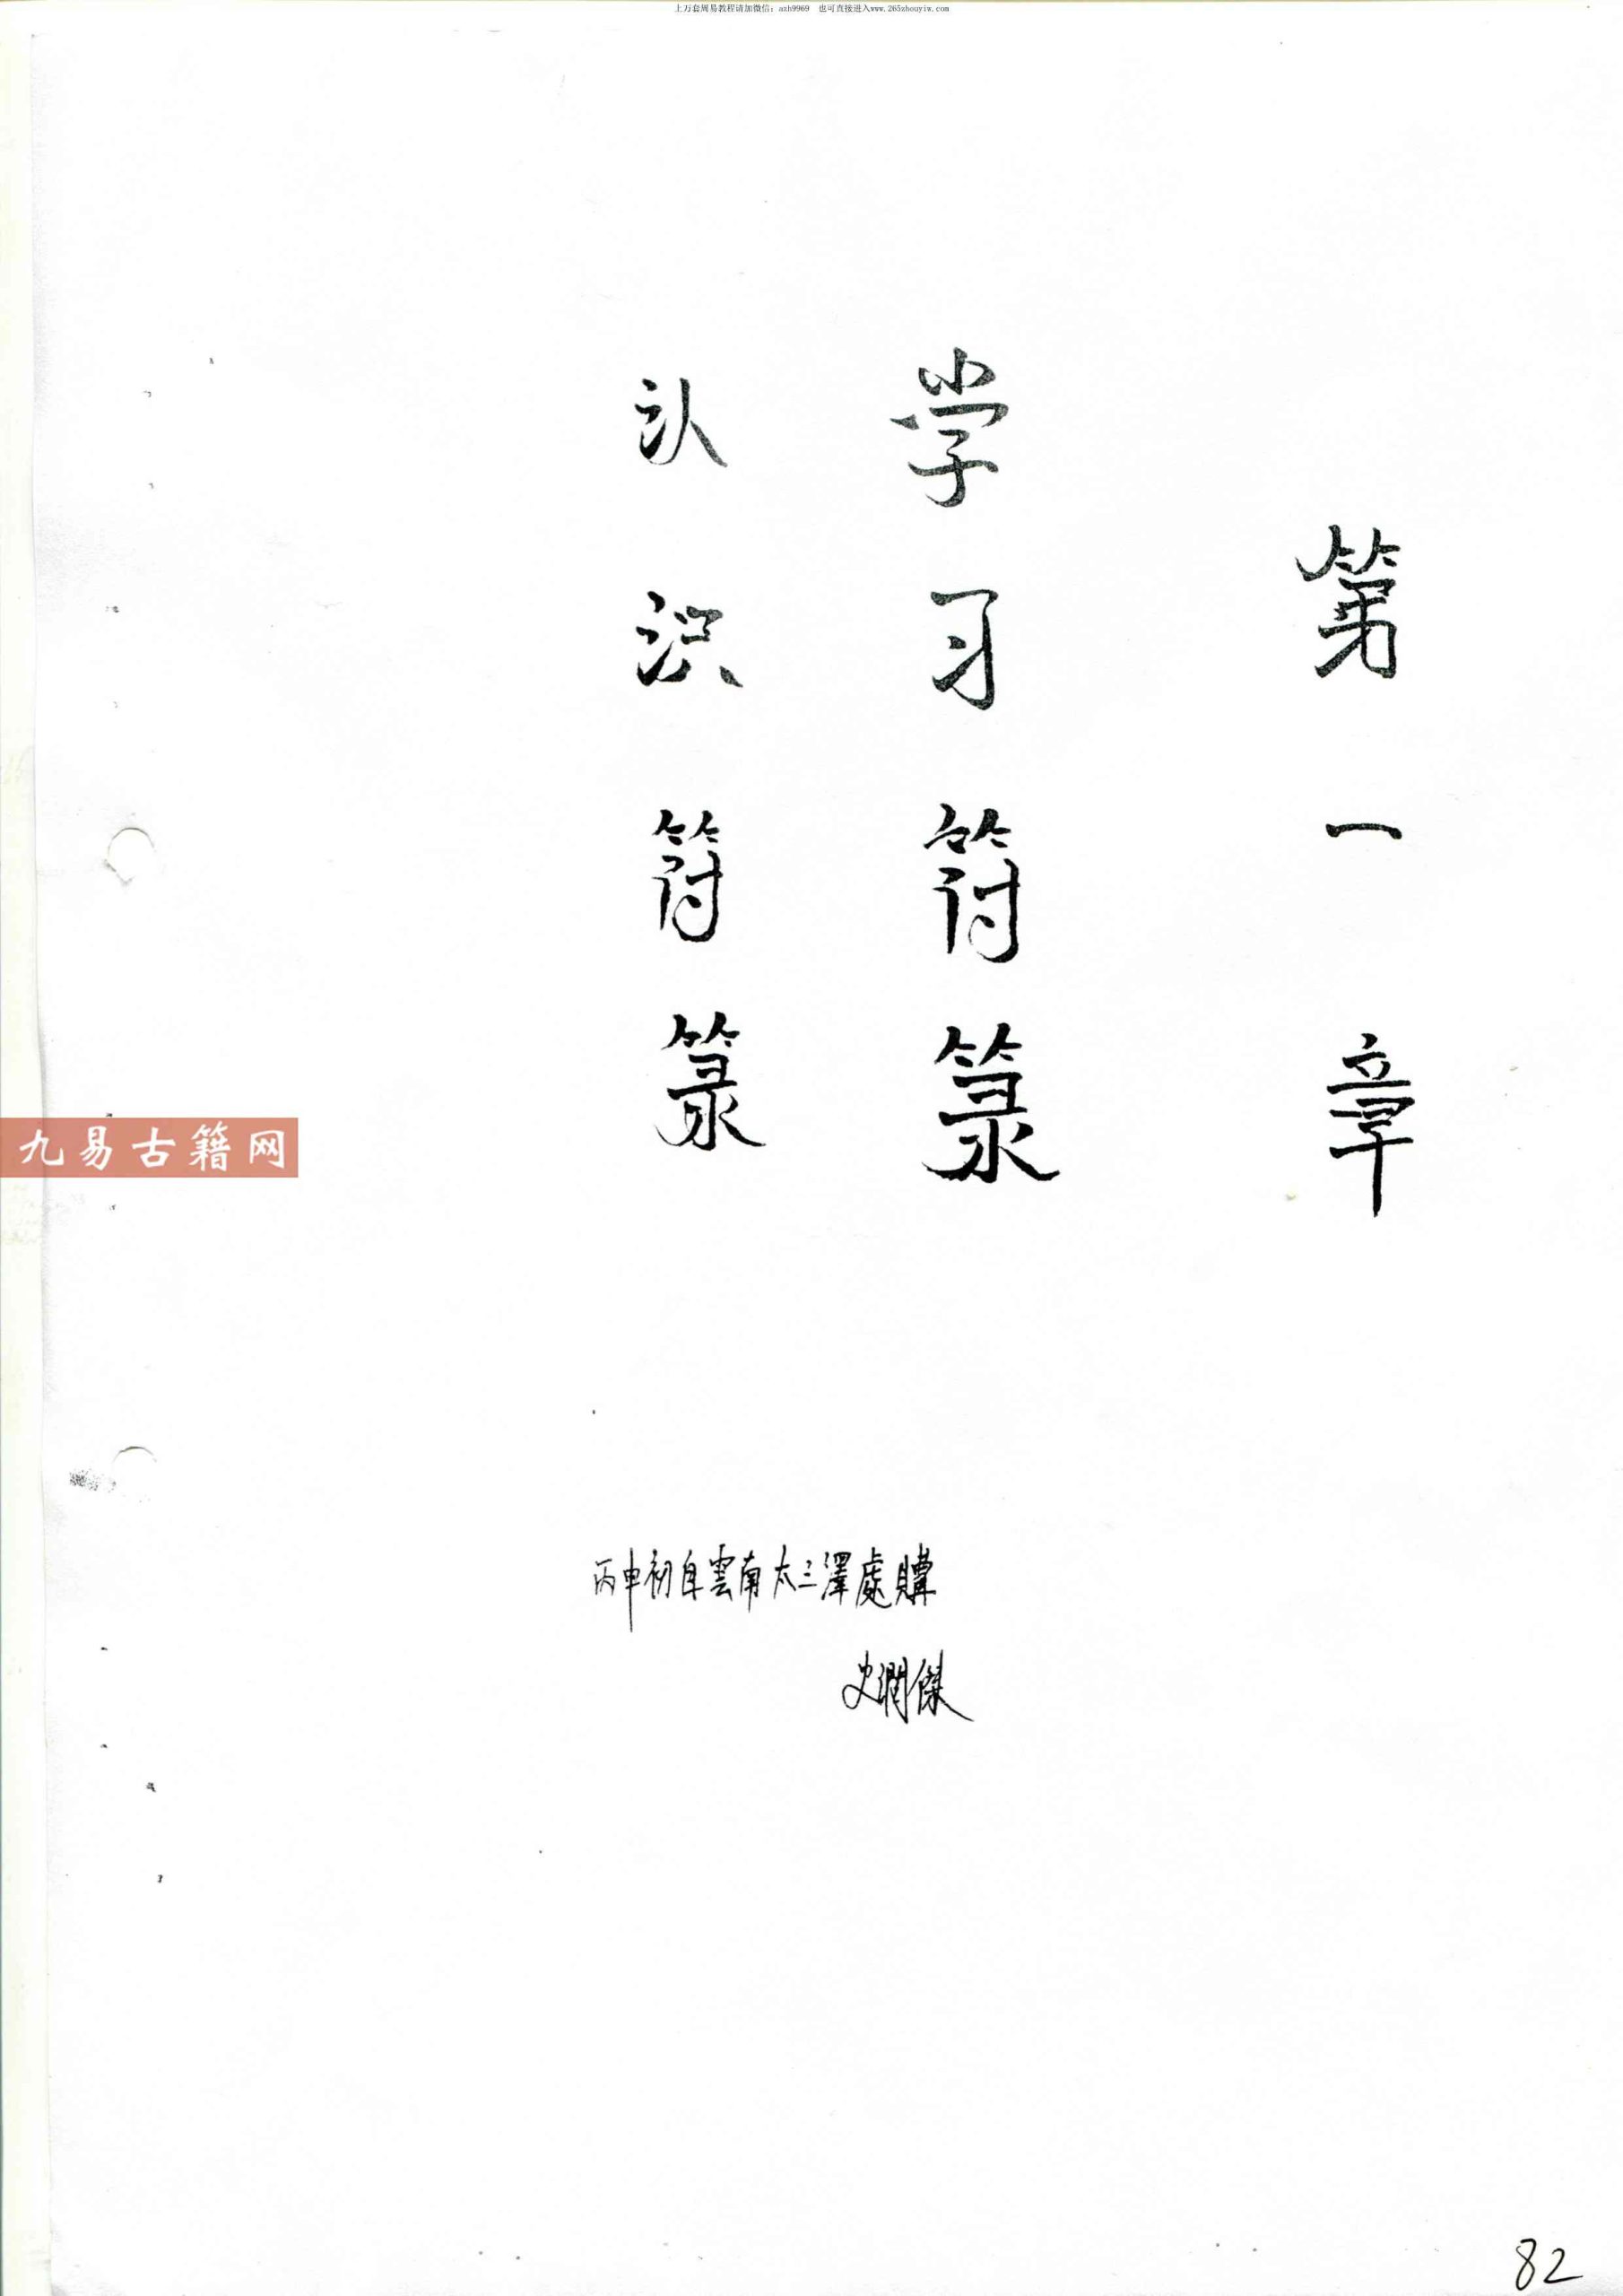 上万套周易教程请加微信：azh9969 也可直接进入www.265zhouyiw.com
第一章
学习符箓
认识符箓
九易古籍网
丙申初自雲南太三澤處購
史潤傑
82